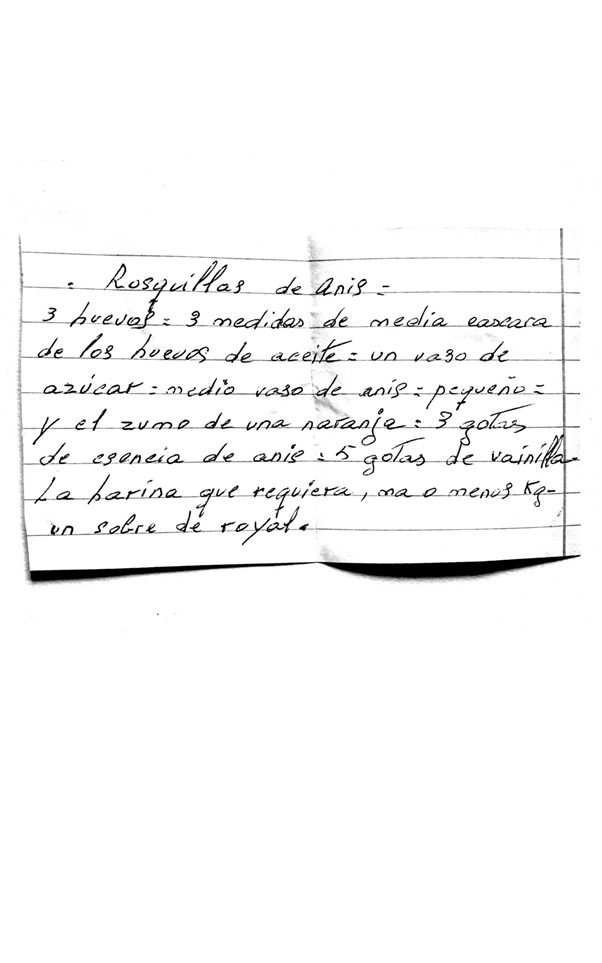 . Rosquillas de anis =
3 huevos = 3 medidas de media cascara
de los huevos de aceite = un vaso de
azúcar = medio vaso de anis = pequeño =
y el zumo de una naranja = 3 gotas
de esencia de anis = 5 gotas de vainilla
La harina que requiera, ma o menos Kg-
un sobre de royal.